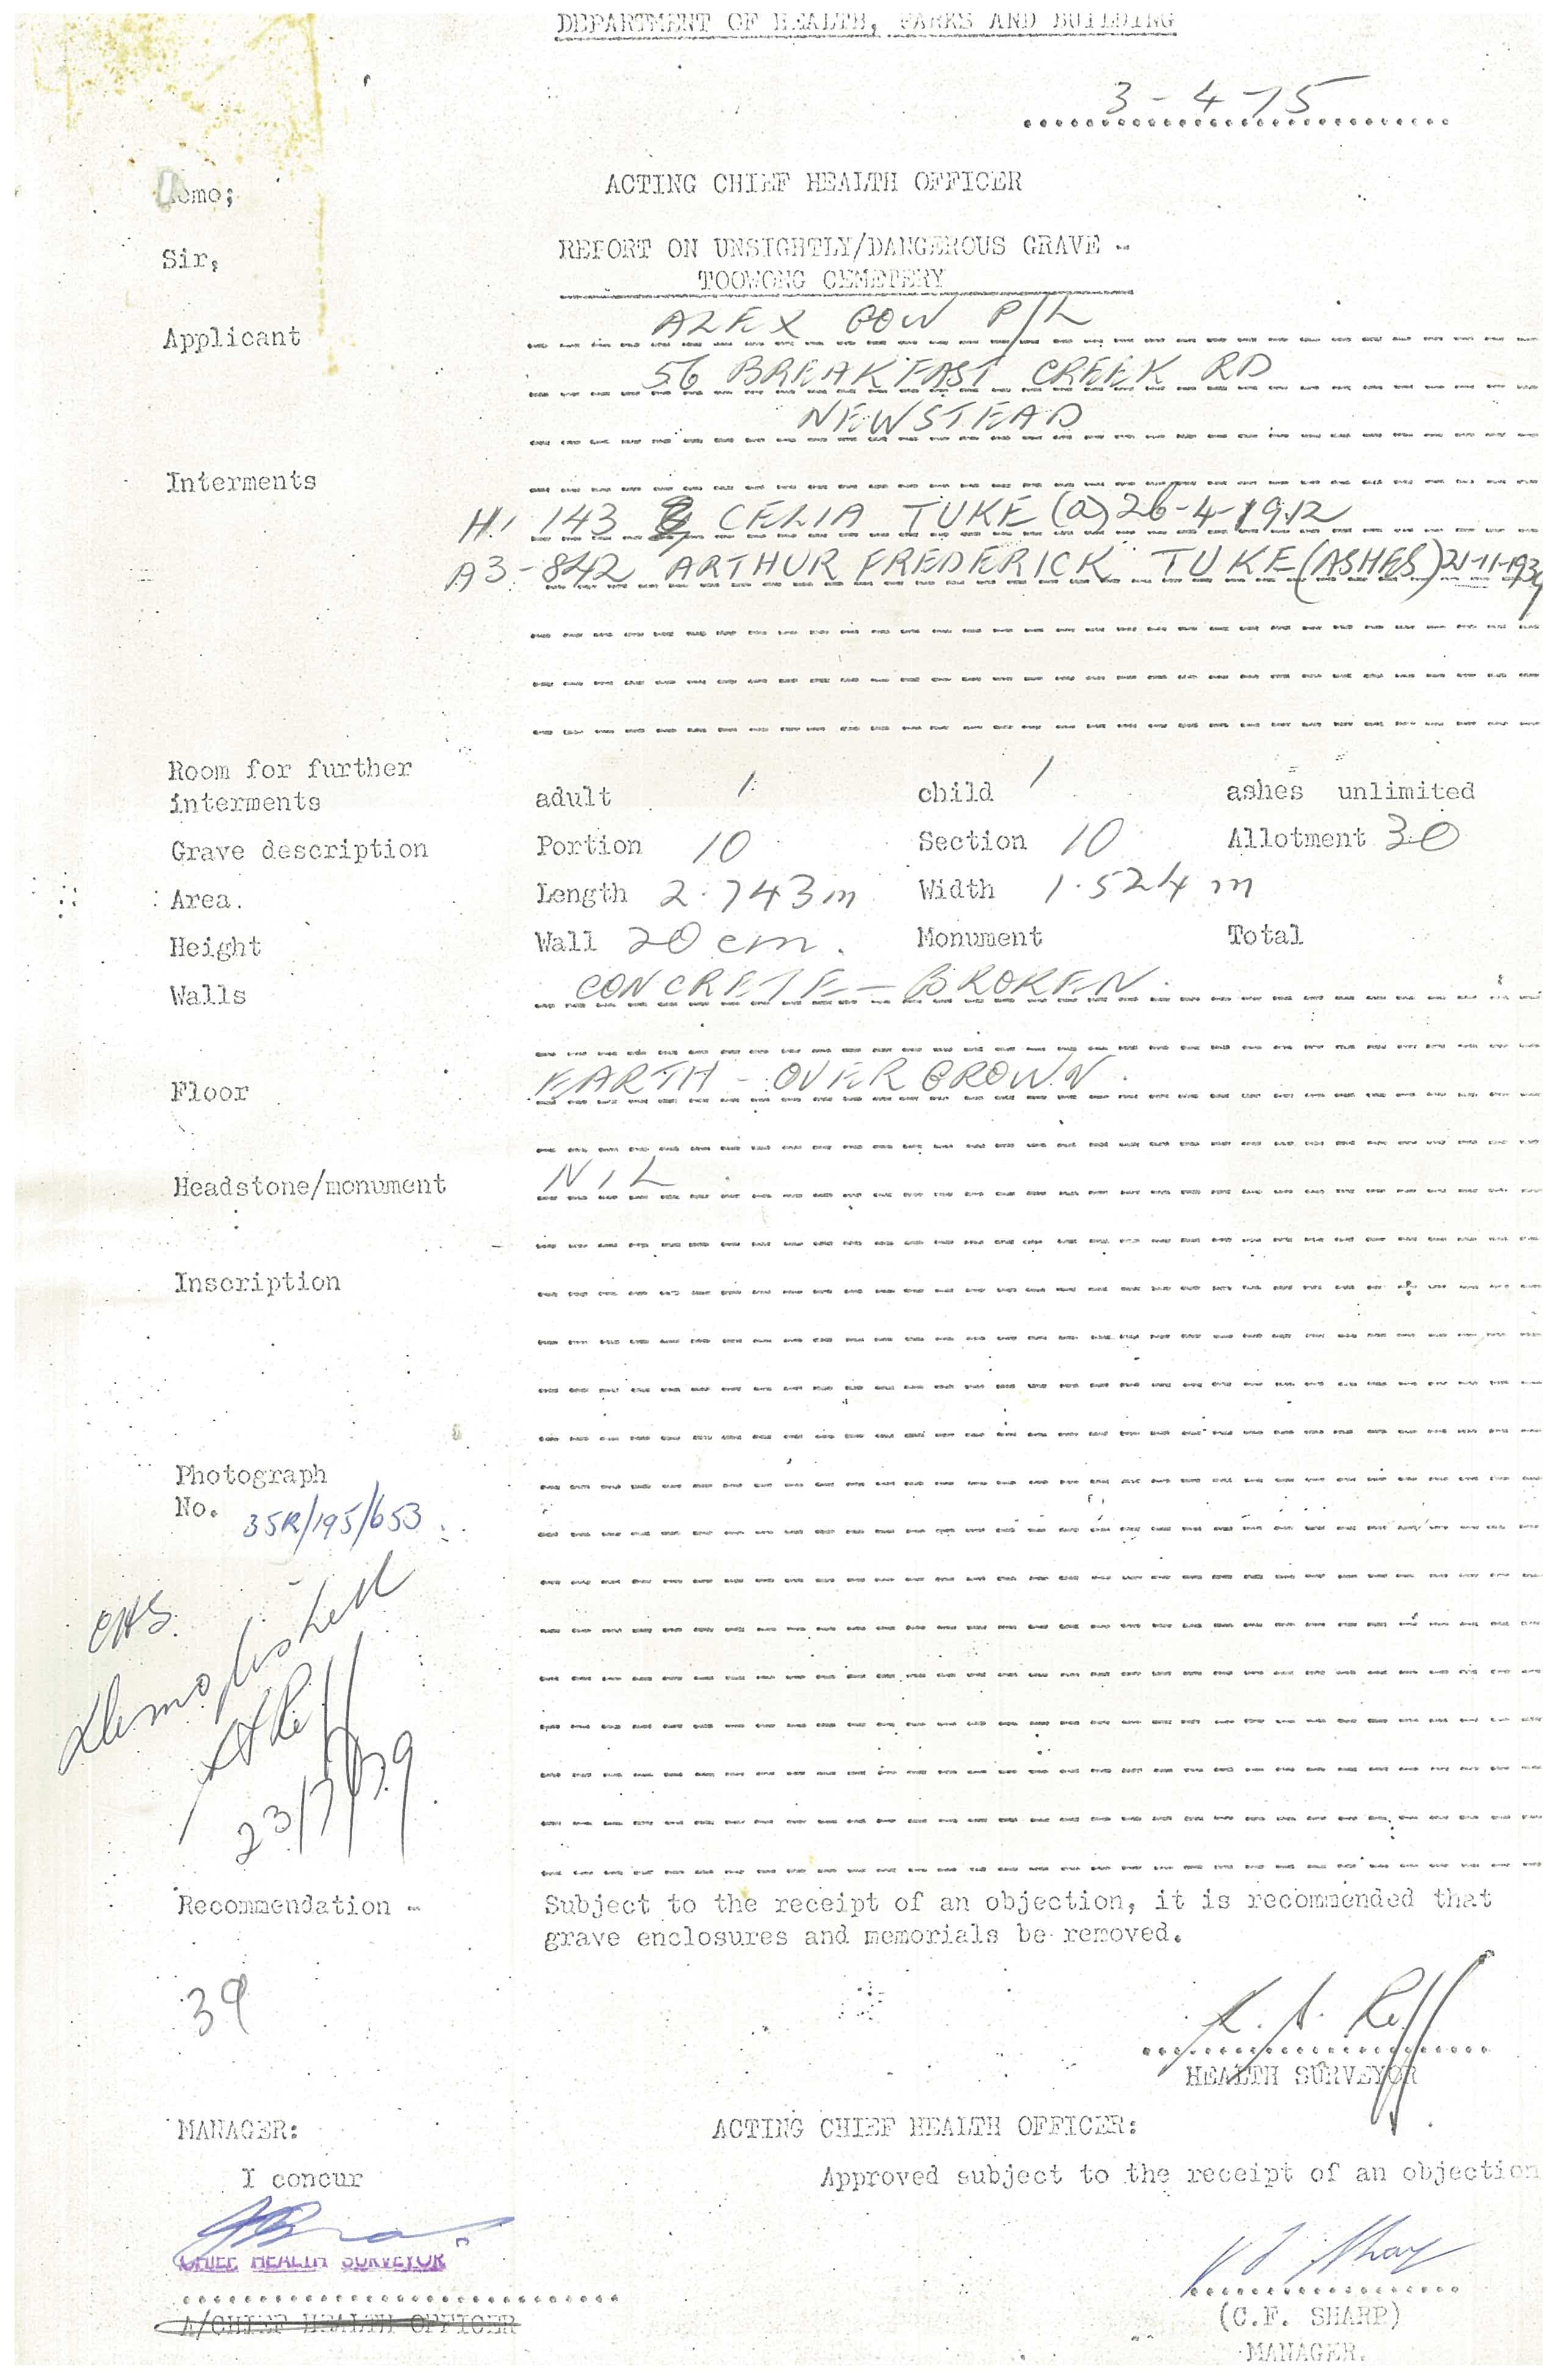 DEPARTMENT OF HEALTH, PARKS AND BUILDING
3-4-75
Memo; ACTING CHIEF HEALTH OFFICER
Sir, REPORT ON UNSIGHTLY/DANGEROUS GRAVE -
TOOWONG CEMETERY
Applicant ALEX GOW P/L
56 BREAKFAST CREEK RD
NEWSTEAD
Interments
H1 143 CELIA TUKE (a) 26-4-1912
A3-842 ARTHUR FREDERICK TUKE (ASHES) 21-11-1934
Room for further
interments adult 1 child 1 ashes unlimited
Grave description Portion 10 Section 10 Allotment 30
Area. Length 2.743m Width 1.524 m
Height Wall 20 cm. Monument Total
Walls CONCRETE - BROKEN.
Floor EARTH - OVERGROWN.
Headstone/monument NIL.
Inscription
Photograph
No. 35R/195/653
CHS.
Demolished
23/7/79
Recommendation - Subject to the receipt of an objection, it is recommended that
grave enclosures and memorials be removed.
39
HEALTH SURVEYOR
MANAGER: ACTING CHIEF HEALTH OFFICER:
I concur Approved subject to the receipt of an objection
CHIEF HEALTH SURVEYOR
A/CHIEF HEALTH OFFICER
(C.F. SHARP)
MANAGER.